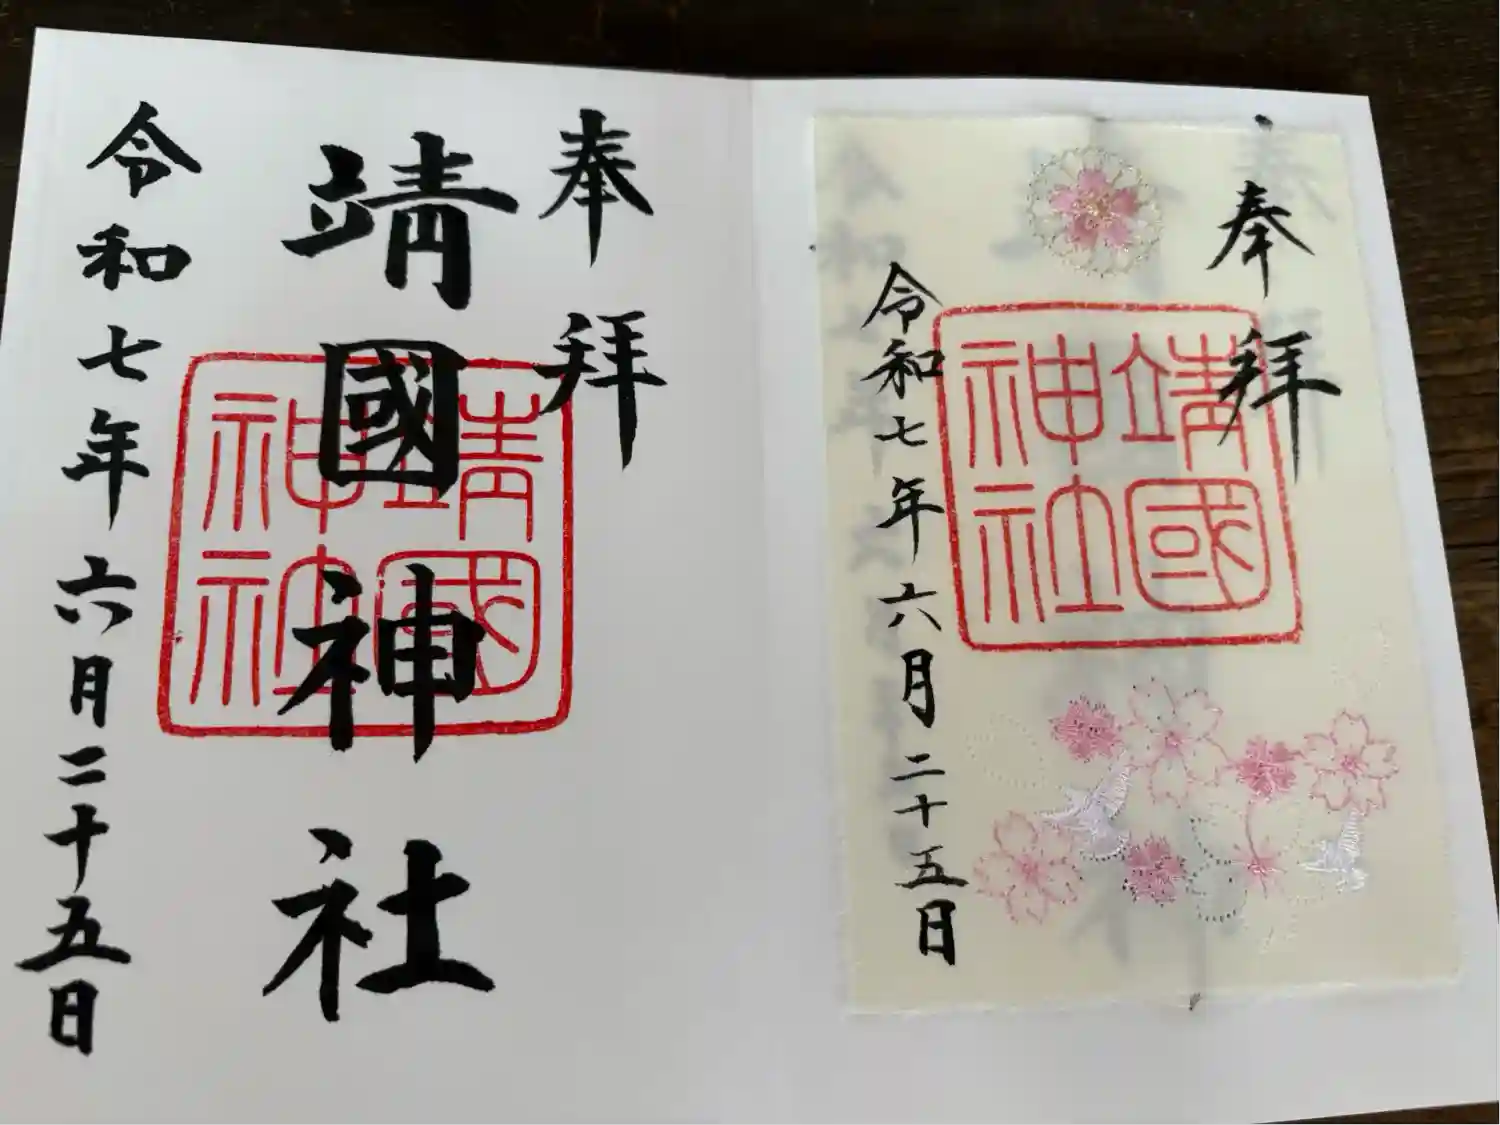 奉拝
令和七年六月二十五日
靖國神社
奉拝
靖國神社
靖國神社
令和七年六月二十五日